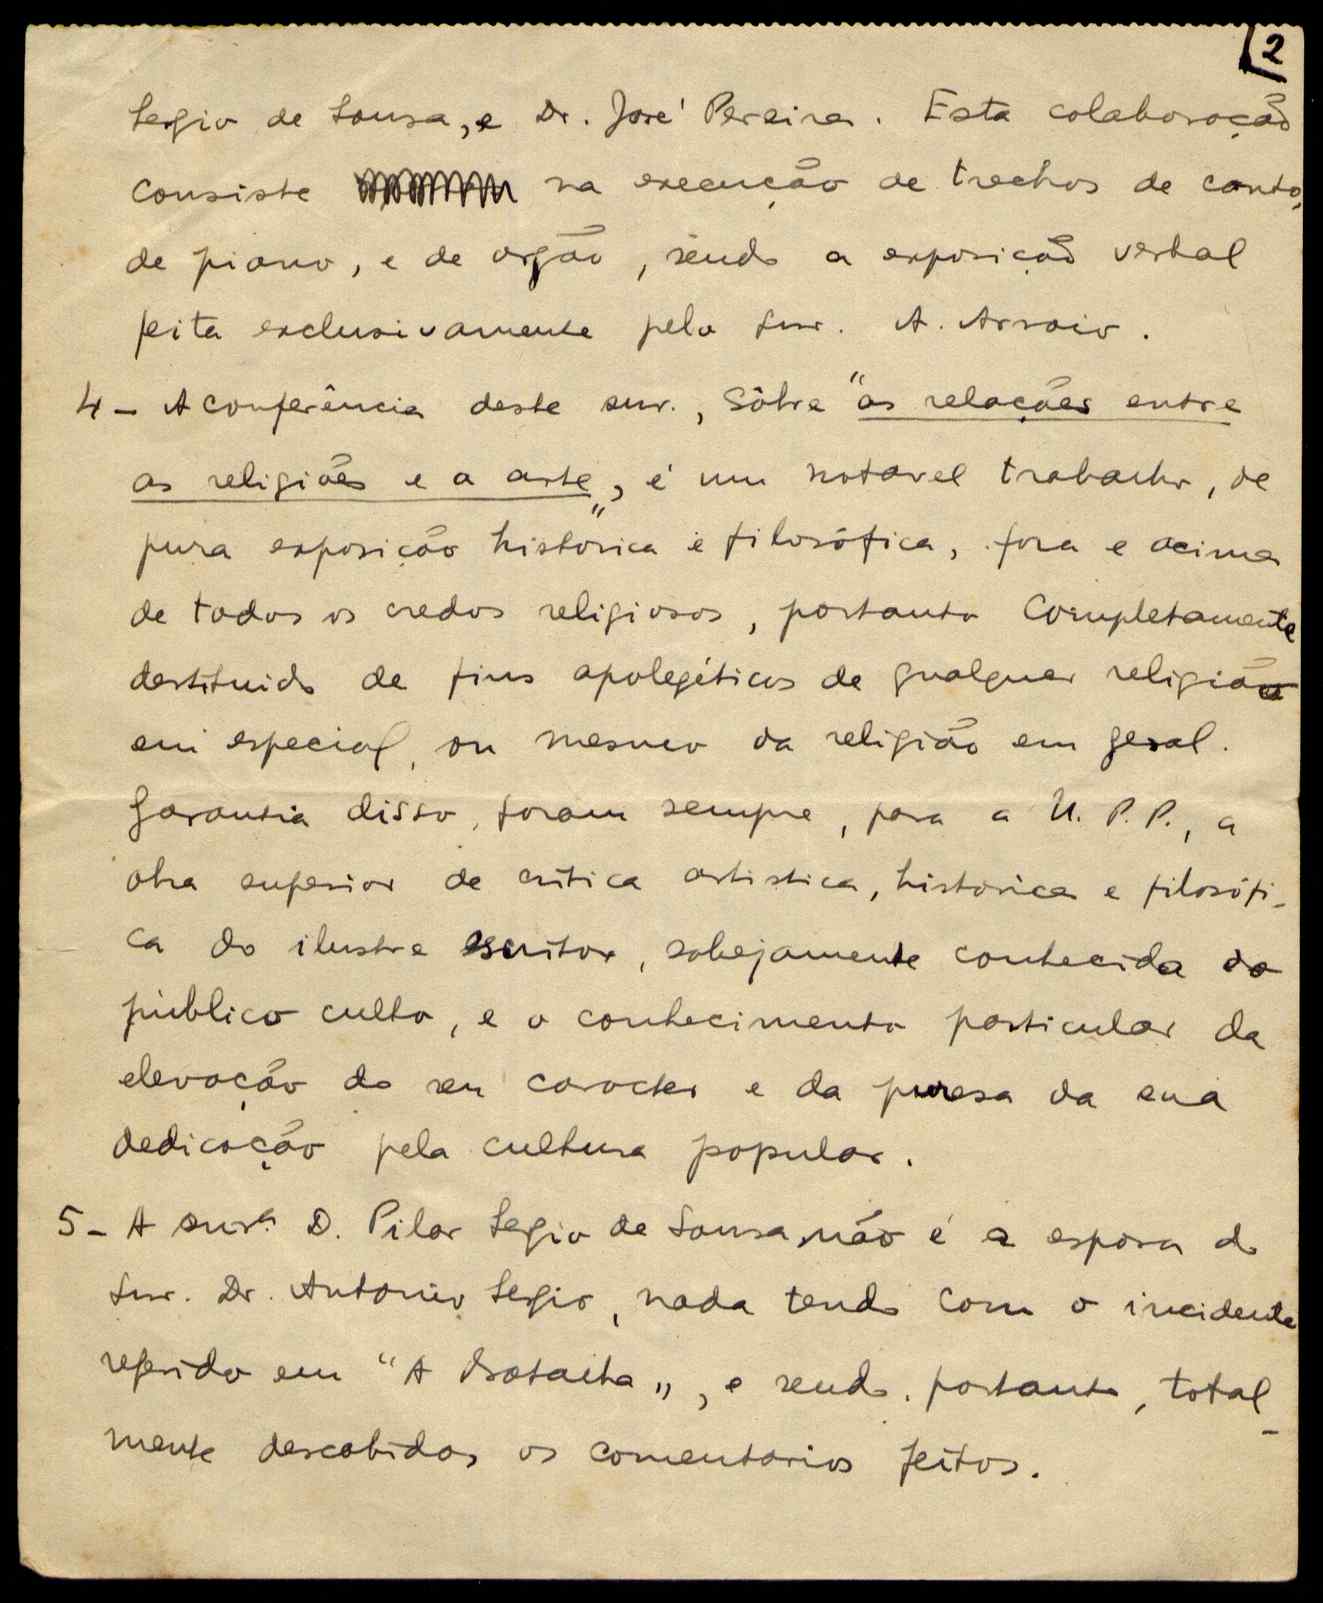 2
Sergio de Sousa, e Dr. José Pereira. Esta colaboração
consiste na execução de trechos de canto,
de piano, e de orgão, sendo a exposição verbal
feita exclusivamente pelo snr. A. Arroio.
4 - A conferência deste snr., sôbre "as relações entre
as religiões e a arte", é um notavel trabalho, de
pura exposição historica e filosófica, fora e acima
de todos os credos religiosos, portanto completamente
destituido de fins apologéticos de qualquer religião
em especial, ou mesmo da religião em geral.
Garantia disso, foram sempre, para a U. P. P., a
obra superior de critica artistica, historica e filosófi-
ca do ilustre escritor, sobejamente conhecida do
público culto, e o conhecimento particular da
elevação do seu caracter e da puresa da sua
dedicação pela cultura popular.
5 - A snrª D. Pilar Sergio de Sousa, não é a esposa do
snr. Dr. Antonio Sergio, nada tendo com o incidente
referido em "A Batalha", e sendo, portanto, total-
mente descabidos os comentarios feitos.